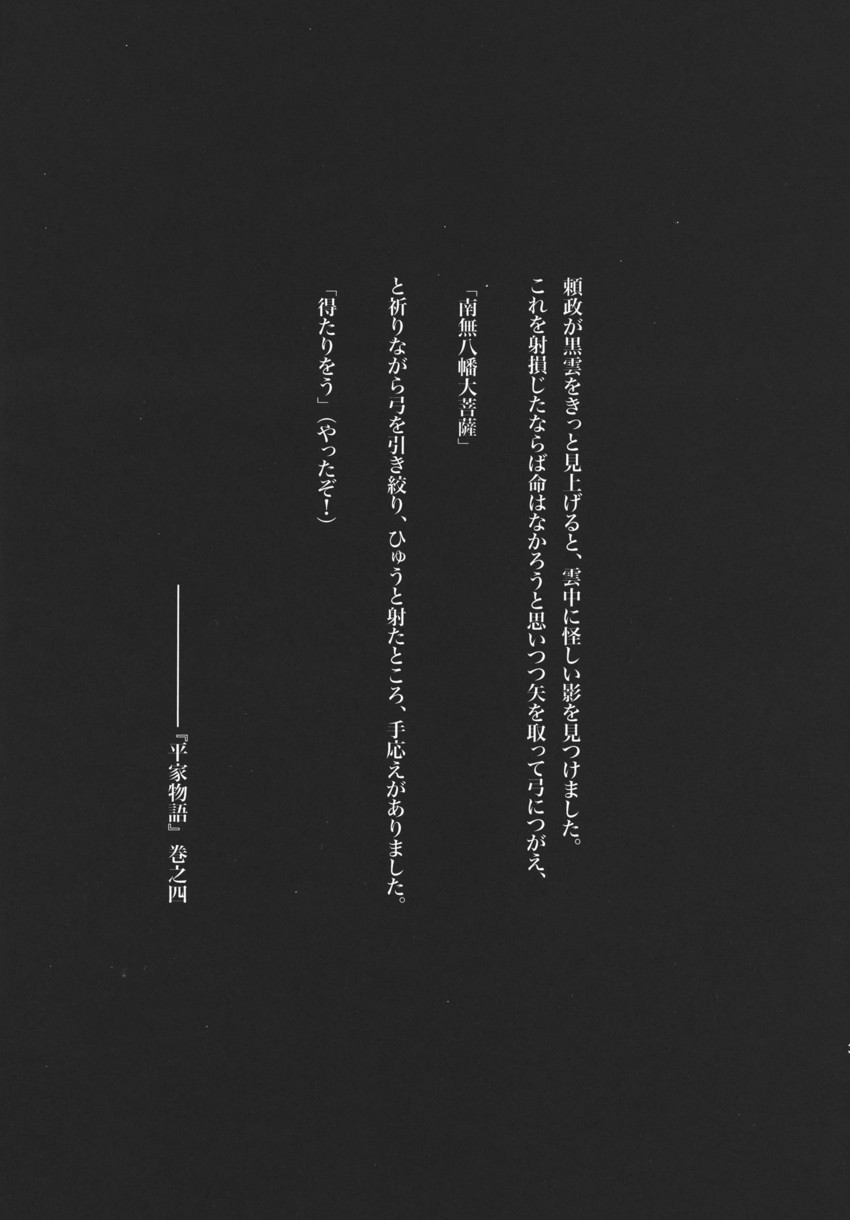 頼政が黒雲をきっと見上げると、雲中に怪しい影を見つけました。
これを射損じたならば命はなかろうと思いつつ矢を取って弓につがえ、
「南無八幡大菩薩」
と祈りながら弓を引き絞り、ひゅうと射たところ、手応えがありました。
「得たりをう」(やったぞ！)
――――『平家物語』 巻之四